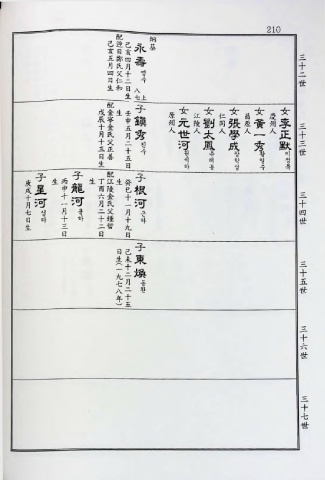 210
三十二世
納基
永壽 영수
八七 上
己亥四月十二日生
配迎日鄭氏父仁和
己亥五月四日生
三十三世
女 李正默 이정묵
慶州人
女 黃一秀 황일수
昌原人
女 張學成 장학성
仁同人
女 劉太鳳 유태봉
江陵人
女 元世河 원세하
原州人
子 鎭秀 진수
壬申五月二十五日
生
配金寧金氏父正善
戊辰十月十三日生
三十四世
子 根河 근하
癸巳十一月十九日
生
配江陵金氏父鍾哲
丁酉六月二十二日
生
子 龍河 용하
丙申十一月十三日
生
子 星河 성하
庚戌十月七日生
三十五世
子 東煥 동환
己未十二月二十五
日生(一九七八年)
三十六世
三十七世